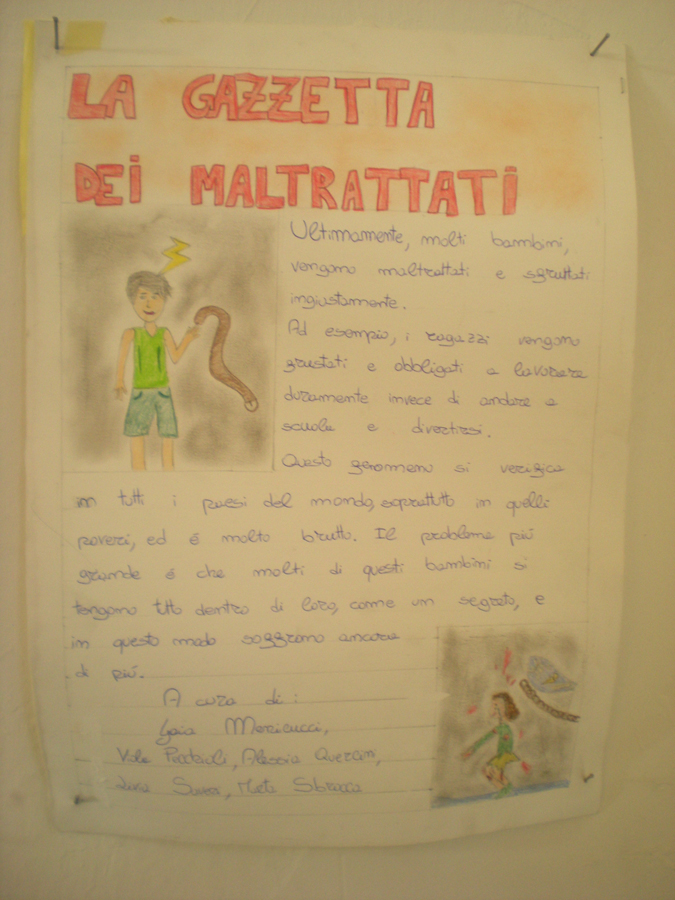 LA GAZZETTA
DEI MALTRATTATI
Ultimamente, molti bambini,
vengono maltrattati e sfruttati
ingiustamente.
Ad esempio, i ragazzi vengono
frustati e obbligati a lavorare
duramente invece di andare a
scuola e divertirsi.
Questo fenomeno si verifica
in tutti i paesi del mondo, soprattutto in quelli
poveri, ed é molto brutto. Il problema piú
grande é che molti di questi bambini si
tengono tutto dentro di loro, come un segreto, e
in questo modo soffrono ancora
di piú.
A cura di:
Gaia
Alessia
Sbracca